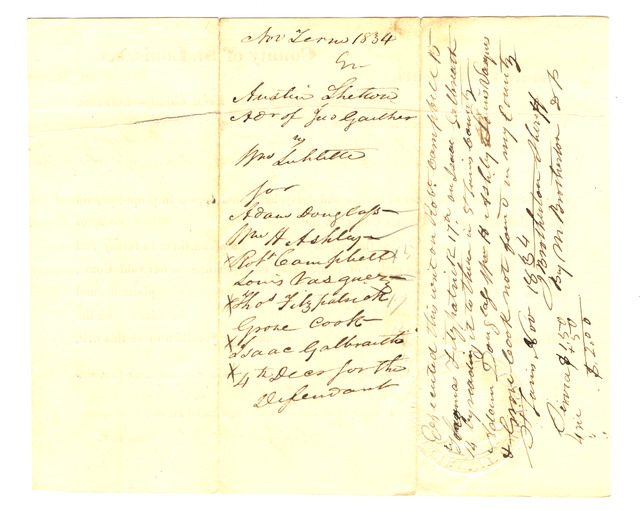 Nov Term 1834
Austin Shelton
Adr of Jno Gaither
vs
Wm Sublette
for
Adam Douglass
Wm H Ashley
x Robt Campbell
Louis Vasquez
x Thos Fitzpatrick
Grove Cook
x Isaac Galbraith
x 4th Decr for the
Defendant
Executed this writ on Robt Campbell 15
Thomas Fitzpatrick 17th on Isaac Galbreath
18 by reading it to them in St Louis County
Adam Douglass Wm H Ashley Louis Vasques
& Grove Cook not found in my County
St Louis Nov 1834
Brotherton Sheriff
By M Brotherton D S
Service $1.50
.50
$2.00